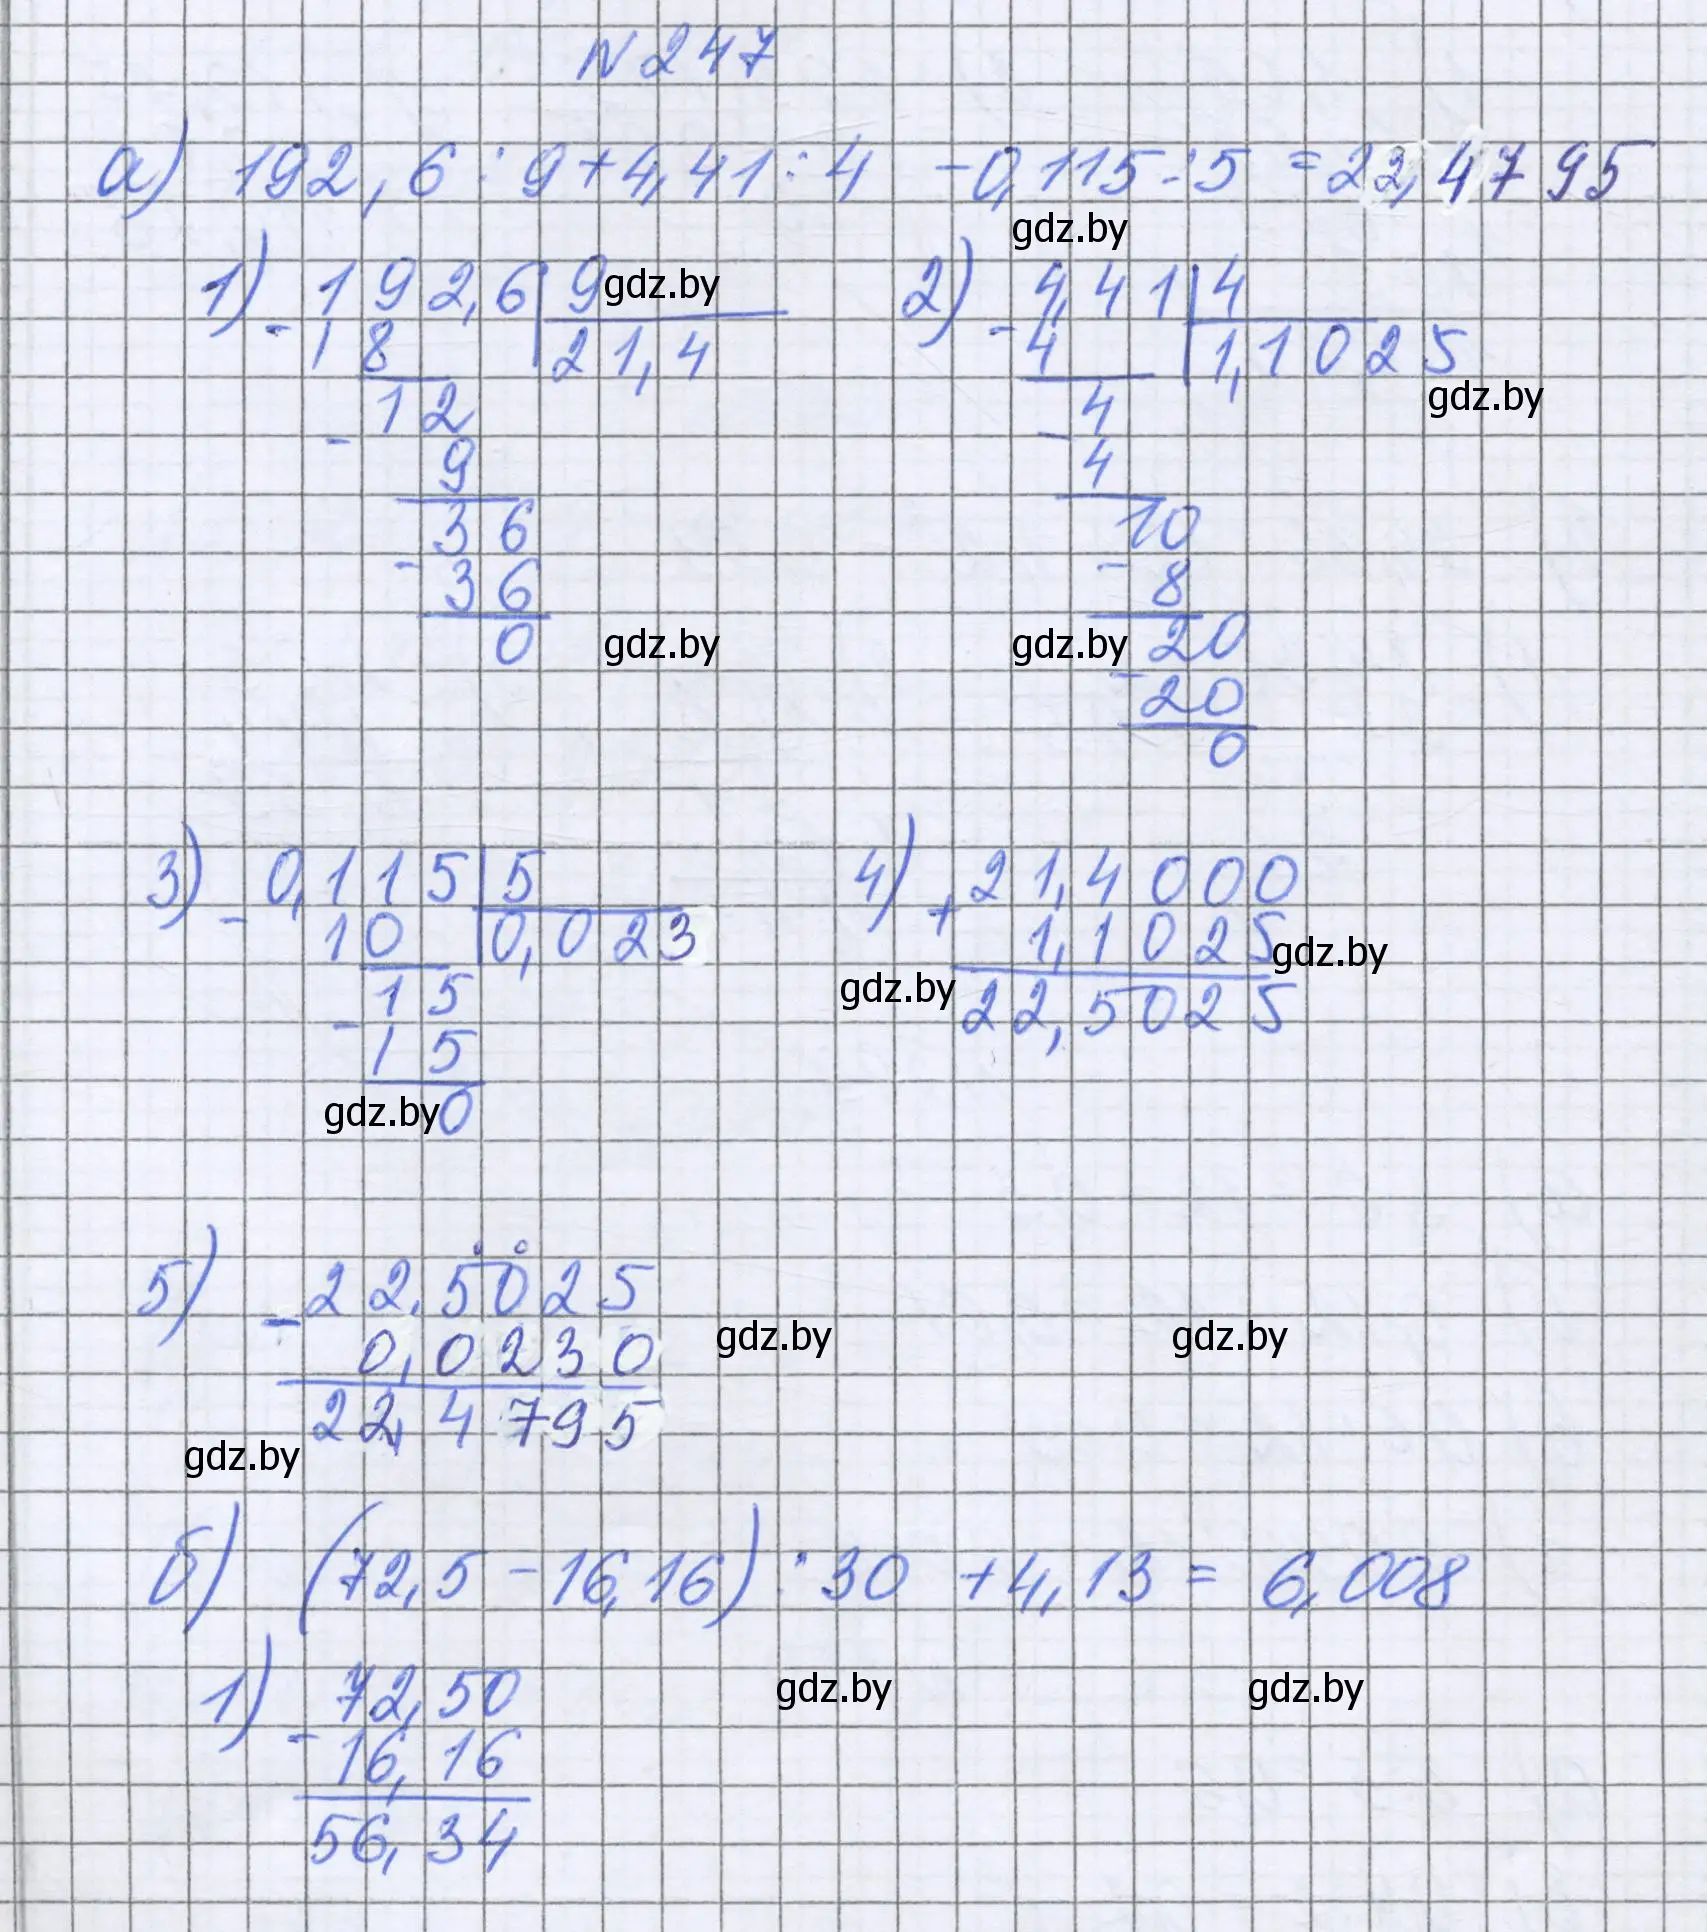 N 247
а) 192,6 : 9 + 4,41 : 4 - 0,115 : 5 = 22,4795
gdz.by
1) - 192,6 | 9 gdz.by 2) - 4,41 | 4
18 21,4 4 1,1025
gdz.by
12 4
- 9 - 4
36 10
- 36 - 8
0 gdz.by gdz.by 20
- 20
0
3) - 0,115 | 5 4) + 21,4000
10 0,023 1,1025 gdz.by
15 gdz.by 22,5025
- 15
gdz.by 0
5) - 22,5025
0,0230 gdz.by gdz.by
22,4795
gdz.by
б) (72,5 - 16,16) : 30 + 4,13 = 6,008
1) - 72,50 gdz.by gdz.by
16,16
56,34